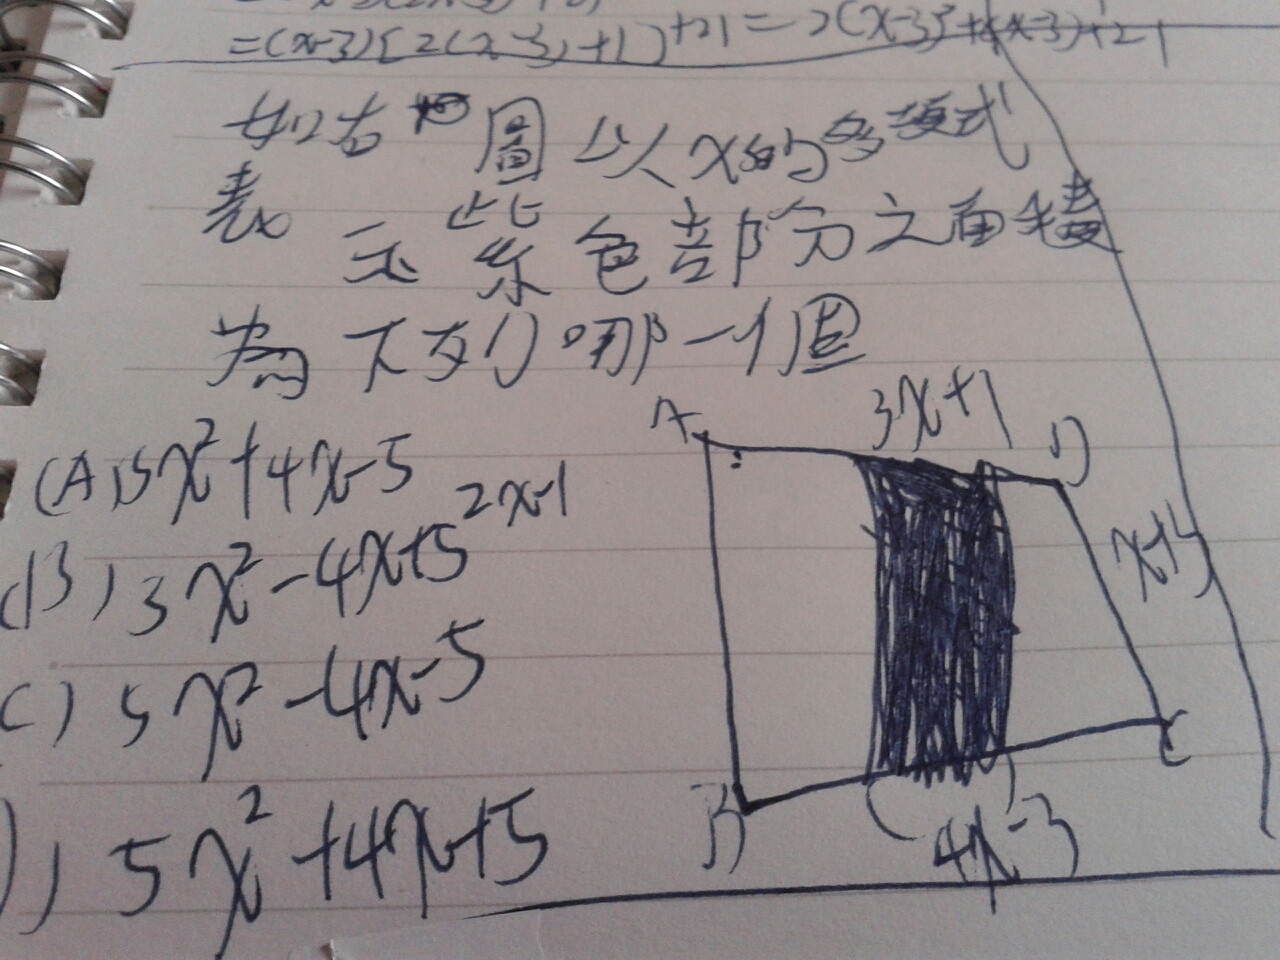 =(x-3)[2(x-3)+1]+21=2(x-3)²+(x-3)+21
如右圖以x的多項式
表示紫色部分之面積
為下列哪一個
(A)5x²+4x-5
2x-1
(B)3x²-4x+5
C)5x²-4x-5
)5x²+4x+5
A
3x+1
D
x+5
B
4x-3
C